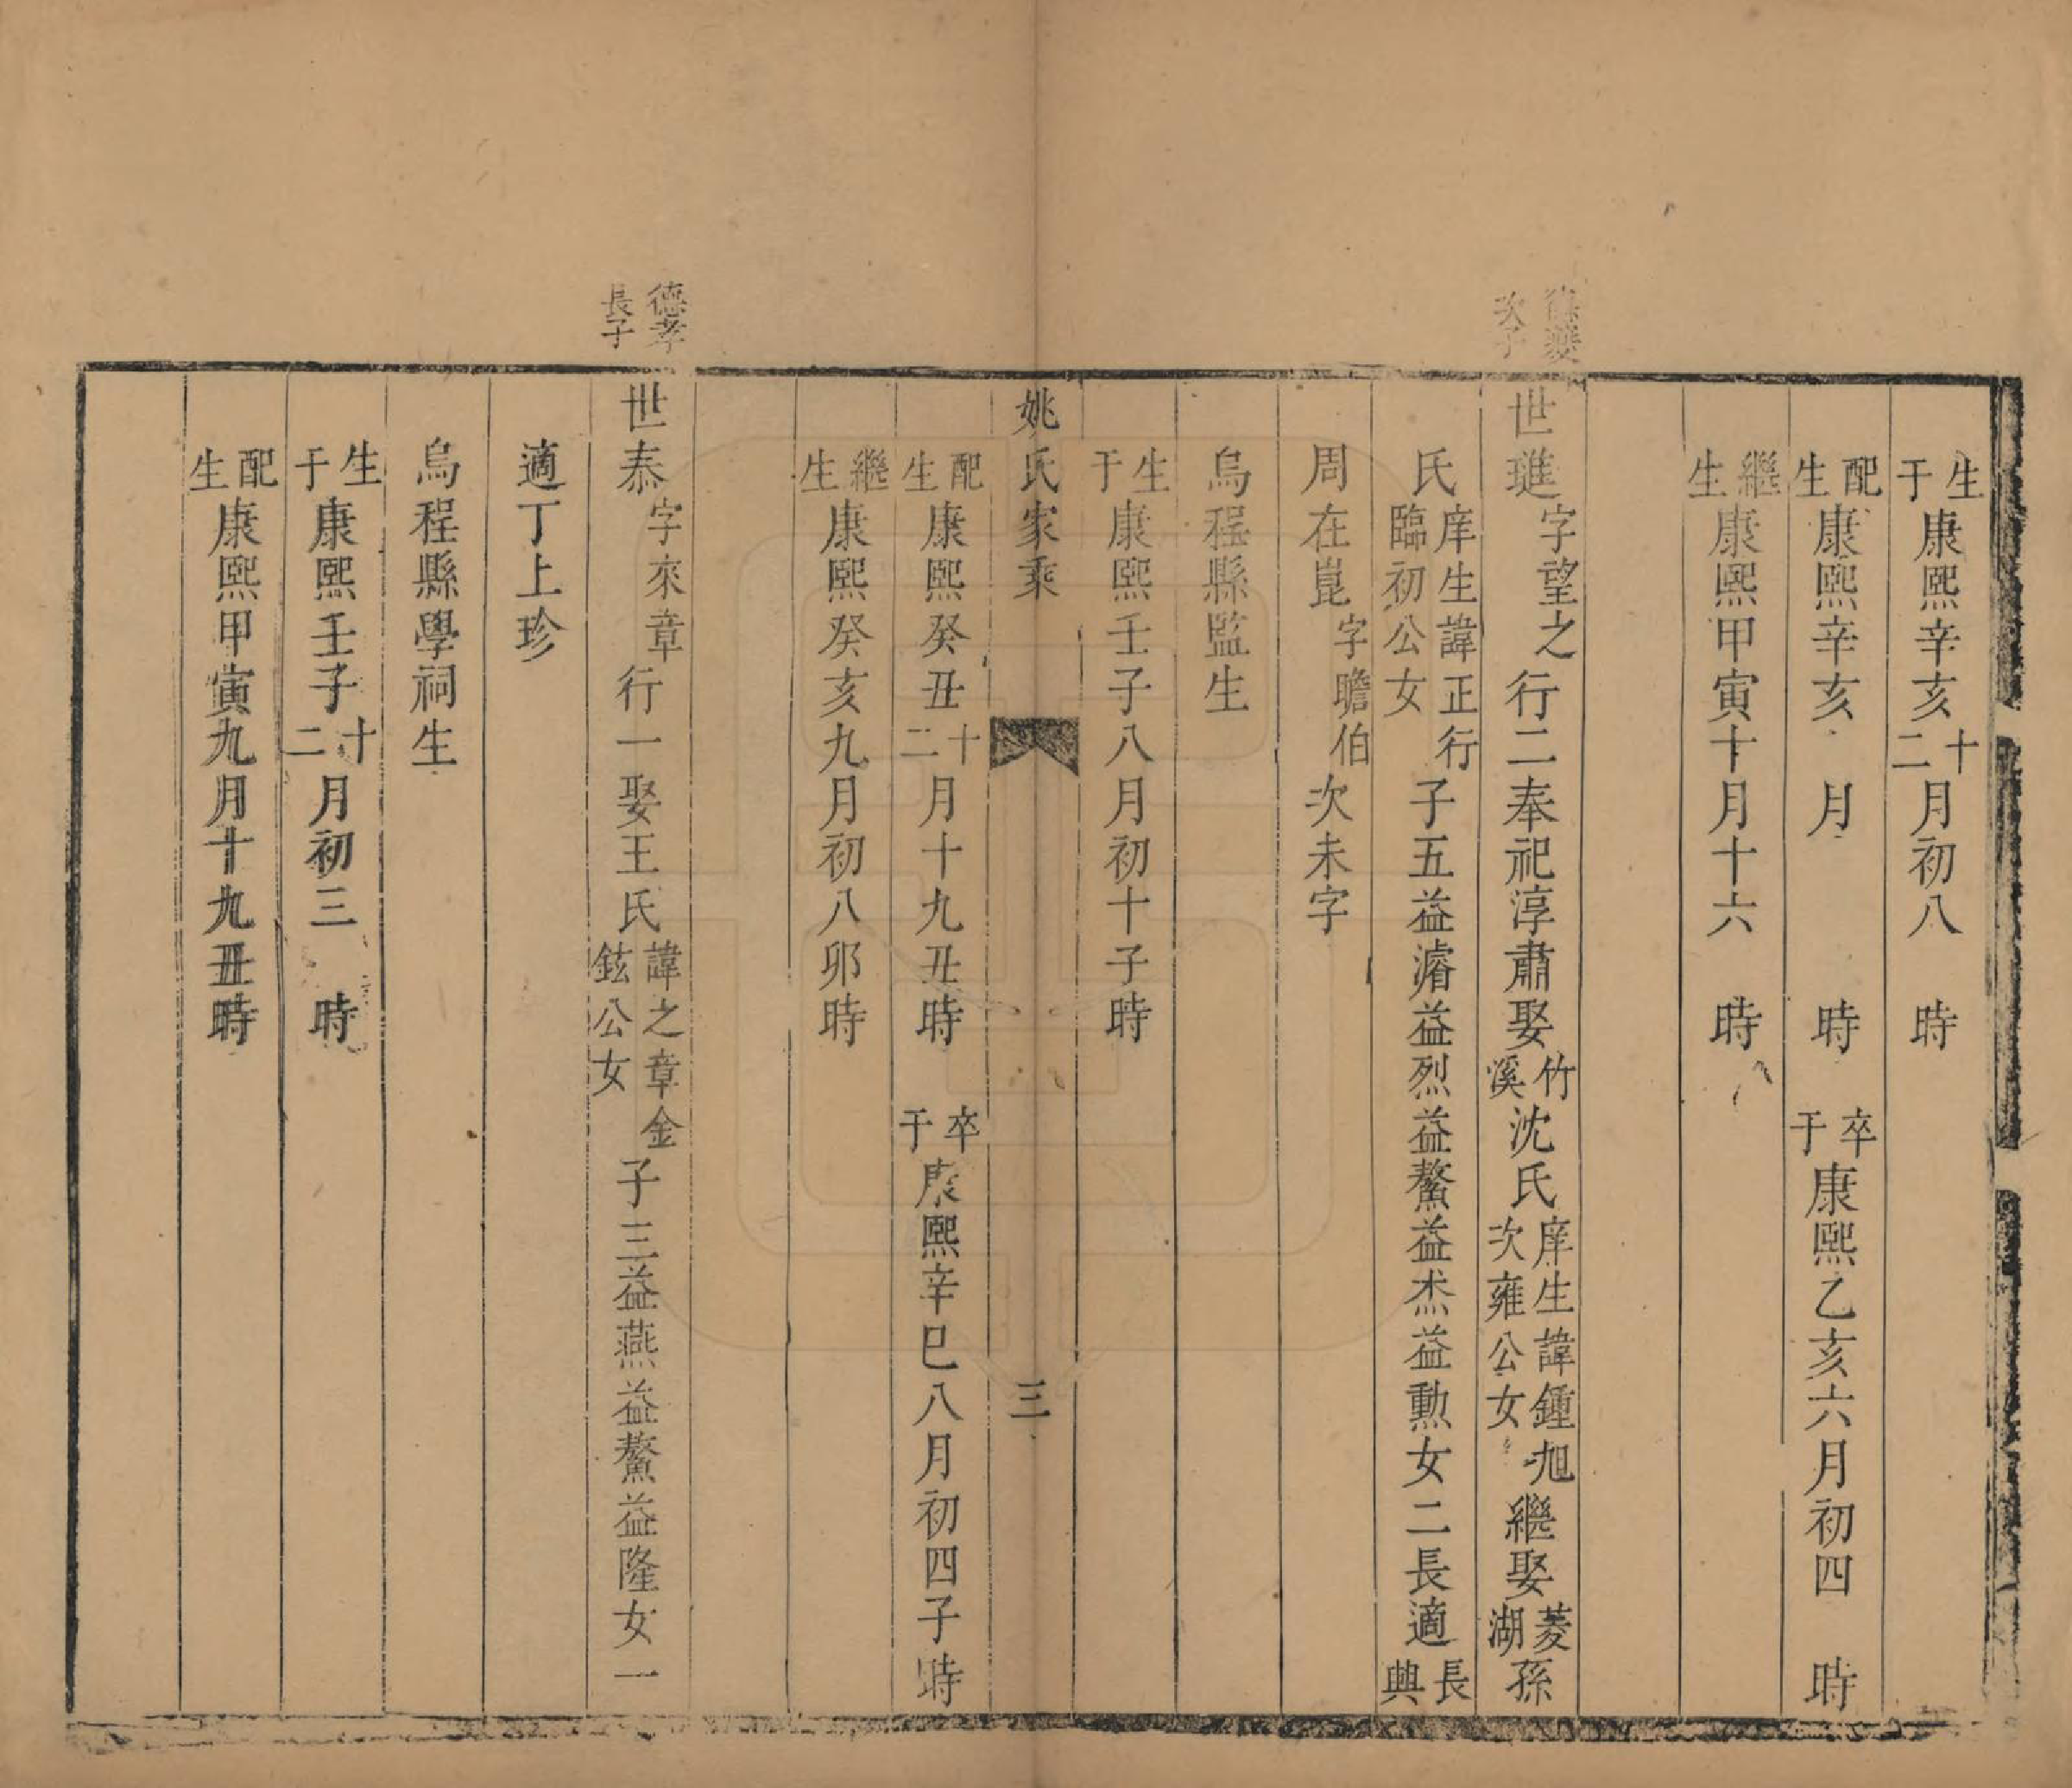 生于康熙辛亥十二月初八　時
配生康熙辛亥　月　　時　卒于康熙乙亥六月初四　時
繼生康熙甲寅十月十六　時
次子
世璡字望之行二奉祀淳肅娶竹溪沈氏庠生諱鍾旭次雍公女繼娶菱湖孫
氏庠生諱正行臨初公女子五益濬益烈益鰲益杰益勳女二長適長興
周在崑字瞻伯次未字
烏程縣監生
生于康熙壬子八月初十子時
姚氏家乘　三
配生康熙癸丑十二月十九丑時　卒于康熙辛巳八月初四子時
繼生康熙癸亥九月初八卯時
德孝長子
世泰字來章行一娶王氏諱之章金鉉公女子三益燕益鰲益隆女一
適丁上珍
烏程縣學祠生
生于康熙壬子十二月初三　時
配生康熙甲寅九月十九丑時